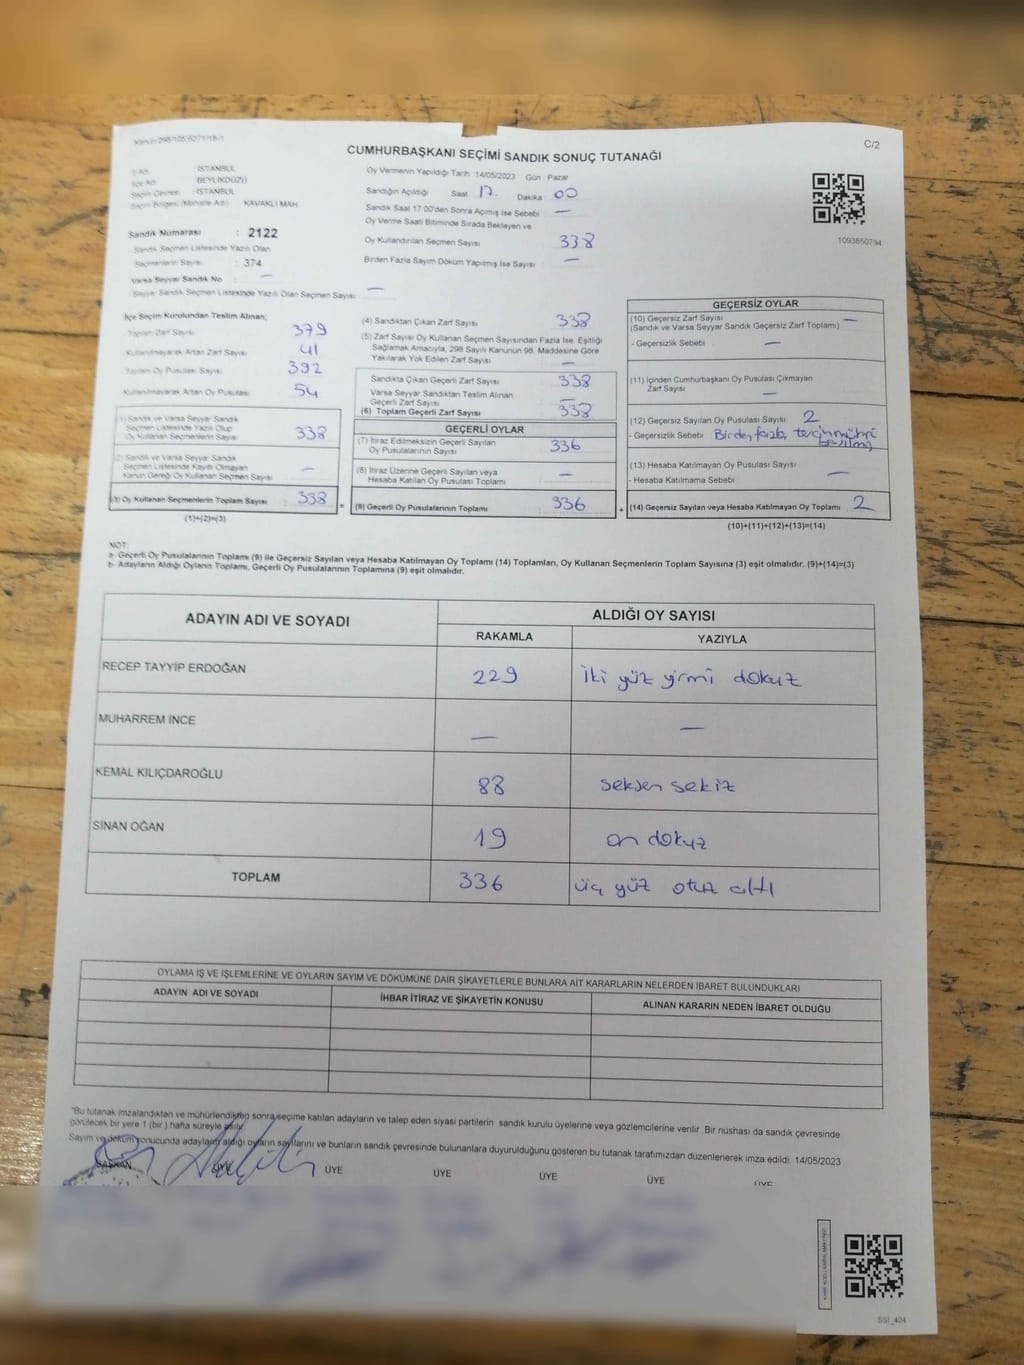 Kanun 298/105 6271/18/1
C/2
CUMHURBAŞKANI SEÇİMİ SANDIK SONUÇ TUTANAĞI
İl Adı : İSTANBUL
İlçe Adı : BEYLİKDÜZÜ
Seçim Çevresi : İSTANBUL
Seçim Bölgesi (Mahalle Adı) KAVAKLI MAH
Sandık Numarası : 2122
Sandık Seçmen Listesinde Yazılı Olan
Seçmenlerin Sayısı : 374
Varsa Seyyar Sandık No : —
Seyyar Sandık Seçmen Listesinde Yazılı Olan Seçmen Sayısı : —
Oy Vermenin Yapıldığı Tarih 14/05/2023 Gün Pazar
Sandığın Açıldığı Saat 17 Dakika 00
Sandık Saat 17:00'den Sonra Açımış İse Sebebi —
Oy Verme Saati Bitiminde Sırada Bekleyen ve
Oy Kullandırılan Seçmen Sayısı 338
Birden Fazla Sayım Döküm Yapılmış İse Sayısı —
1093850794
İlçe Seçim Kurulundan Teslim Alınan;
Toplam Zarf Sayısı 379
Kullanılmayarak Artan Zarf Sayısı 41
Toplam Oy Pusulası Sayısı 392
Kullanılmayarak Artan Oy Pusulası 54
(1) Sandık ve Varsa Seyyar Sandık
Seçmen Listesinde Yazılı Olup
Oy Kullanan Seçmenlerin Sayısı 338
(2) Sandık ve Varsa Seyyar Sandık
Seçmen Listesinde Kayıtlı Olmayan
Kanun Gereği Oy Kullanan Seçmen Sayısı —
(3) Oy Kullanan Seçmenlerin Toplam Sayısı 338 =
(1)+(2)=(3)
(4) Sandıktan Çıkan Zarf Sayısı 338
(5) Zarf Sayısı Oy Kullanan Seçmen Sayısından Fazla İse, Eşitliği
Sağlamak Amacıyla, 298 Sayılı Kanunun 98. Maddesine Göre
Yakılarak Yok Edilen Zarf Sayısı —
Sandıkta Çıkan Geçerli Zarf Sayısı 338
Varsa Seyyar Sandıktan Teslim Alınan
Geçerli Zarf Sayısı —
(6) Toplam Geçerli Zarf Sayısı 338
GEÇERLİ OYLAR
(7) İtiraz Edilmeksizin Geçerli Sayılan
Oy Pusulalarının Sayısı 336
(8) İtiraz Üzerine Geçerli Sayılan veya
Hesaba Katılan Oy Pusulası Toplamı —
(9) Geçerli Oy Pusulalarının Toplamı 336 +
GEÇERSİZ OYLAR
(10) Geçersiz Zarf Sayısı —
(Sandık ve Varsa Seyyar Sandık Geçersiz Zarf Toplamı)
- Geçersizlik Sebebi —
(11) İçinden Cumhurbaşkanı Oy Pusulası Çıkmayan
Zarf Sayısı —
(12) Geçersiz Sayılan Oy Pusulası Sayısı 2
- Geçersizlik Sebebi Birden fazla tercih mührü
(13) Hesaba Katılmayan Oy Pusulası Sayısı —
- Hesaba Katılmama Sebebi
(14) Geçersiz Sayılan veya Hesaba Katılmayan Oy Toplamı 2
(10)+(11)+(12)+(13)=(14)
NOT:
a- Geçerli Oy Pusulalarının Toplamı (9) ile Geçersiz Sayılan veya Hesaba Katılmayan Oy Toplamı (14) Toplamları, Oy Kullanan Seçmenlerin Toplam Sayısına (3) eşit olmalıdır. (9)+(14)=(3)
b- Adayların Aldığı Oyların Toplamı, Geçerli Oy Pusulalarının Toplamına (9) eşit olmalıdır.
ADAYIN ADI VE SOYADI
ALDIĞI OY SAYISI
RAKAMLA YAZIYLA
RECEP TAYYİP ERDOĞAN 229 iki yüz yirmi dokuz
MUHARREM İNCE — —
KEMAL KILIÇDAROĞLU 88 seksen sekiz
SİNAN OĞAN 19 on dokuz
TOPLAM 336 üç yüz otuz altı
OYLAMA İŞ VE İŞLEMLERİNE VE OYLARIN SAYIM VE DÖKÜMÜNE DAİR ŞİKAYETLERLE BUNLARA AİT KARARLARIN NELERDEN İBARET BULUNDUKLARI
ADAYIN ADI VE SOYADI İHBAR İTİRAZ VE ŞİKAYETİN KONUSU ALINAN KARARIN NEDEN İBARET OLDUĞU
"Bu tutanak imzalandıktan ve mühürlendikten sonra seçime katılan adayların ve talep eden siyasi partilerin sandık kurulu üyelerine veya gözlemcilerine verilir. Bir nüshası da sandık çevresinde
görülecek bir yere 1 (bir) hafta süreyle asılır.
Sayım ve döküm sonucunda adayların aldığı oyların sayılarını ve bunların sandık çevresinde bulunanlara duyurulduğunu gösteren bu tutanak tarafımızdan düzenlenerek imza edildi. 14/05/2023
BAŞKAN ÜYE ÜYE ÜYE ÜYE ÜYE ÜYE
SG1_404